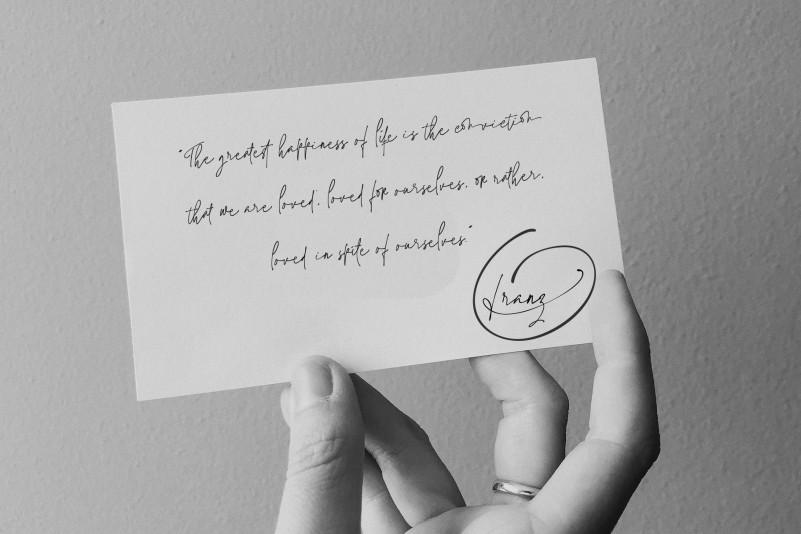 "The greatest happiness of life is the conviction
that we are loved, loved for ourselves, or rather,
loved in spite of ourselves"
Franz